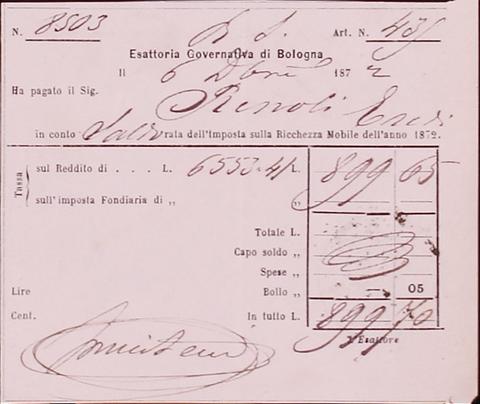 N. 8503 Art. N.
Esattoria Governativa di Bologna
Il 6 Dbre 1872
Ha pagato il Sig. Eredi
in conto Saldo rata dell'Imposta sulla Ricchezza Mobile dell'anno 1872.
Tassa
sul Reddito di . . . L. 6553.41 899 65
sull'imposta Fondiaria di „ „
Totale L.
Capo soldo „
Spese „
Lire Bollo „ — 05
Cent. In tutto L. 899 70
l'Esattore